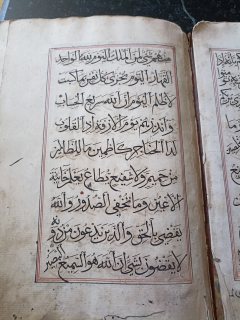 منهم شئ لمن الملك اليوم لله الواحد
القهار اليوم تجزى كل نفس ما كسبت
لا ظلم اليوم ان الله سريع الحساب
وانذرهم يوم الازفة اذ القلوب
لدا الحناجر كاظمين ما للظالمين
من حميم ولا شفيع يطاع يعلم خائنة
الاعين وما تخفى الصدور والله
يقضى بالحق والذين يدعون من دونه
لا يقضون بشئ ان الله هو السميع البصير